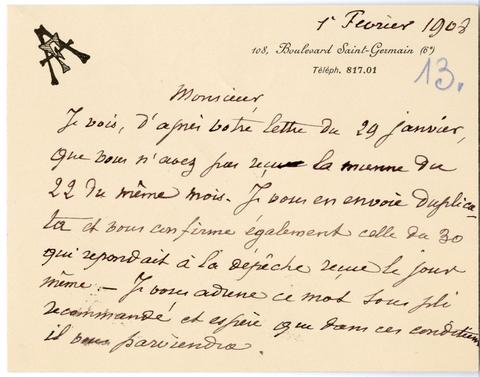 1r Fevrier 1908
108, Boulevard Saint-Germain (6e)
Téléph. 817.01
13.
Monsieur,
Je vois, d'après votre lettre du 29 janvier,
que vous n'avez pas reçue la mienne du
22 du même mois. Je vous en envoie duplica-
ta et vous confirme également celle du 30
qui repondait à la depêche reçue le jour
même. — Je vous adresse ce mot sous pli
recommandé et espère que dans ces conditions
il vous parviendra.